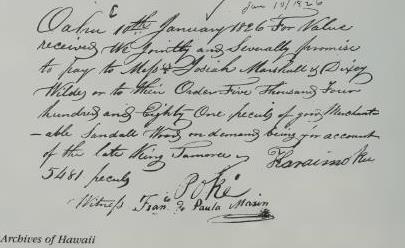 Jan 10/1826
Oahu 10th January 1826 For Value
received We Jointly and Severally promise
to pay to Messrs Josiah Marshall & Dixey
Wildes or to their Order Five Thousand Four
hundred and Eighty One peculs of good Merchant
-able Sandall Wood on demand being for account
of the late King Tamoree
Karaimoku
5481 peculs
Poke
Witness Franco de Paula Marin
Archives of Hawaii